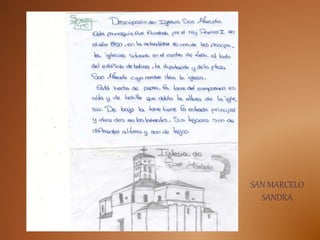 Descripción de: Iglesia San Marcelo
Esta parroquia fue fundada por el rey Ramiro I en
el año 850, en la actualidad es una de las principa-
les iglesias situada en el centro de León, al lado
del edificio de botines, la diputación y de la plaza
San Marcelo cuyo nombre lleva la iglesia.
Está hecha de piedra, la torre del campanario es
alta y de ladrillo que dobla la altura de la igle
sia. De bajo la torre tiene la entrada principal
y otras dos en los laterales. Sus tejados son de
diferentes alturas y son de tejas.
Iglesia de
San Marcelo
SAN MARCELO
SANDRA